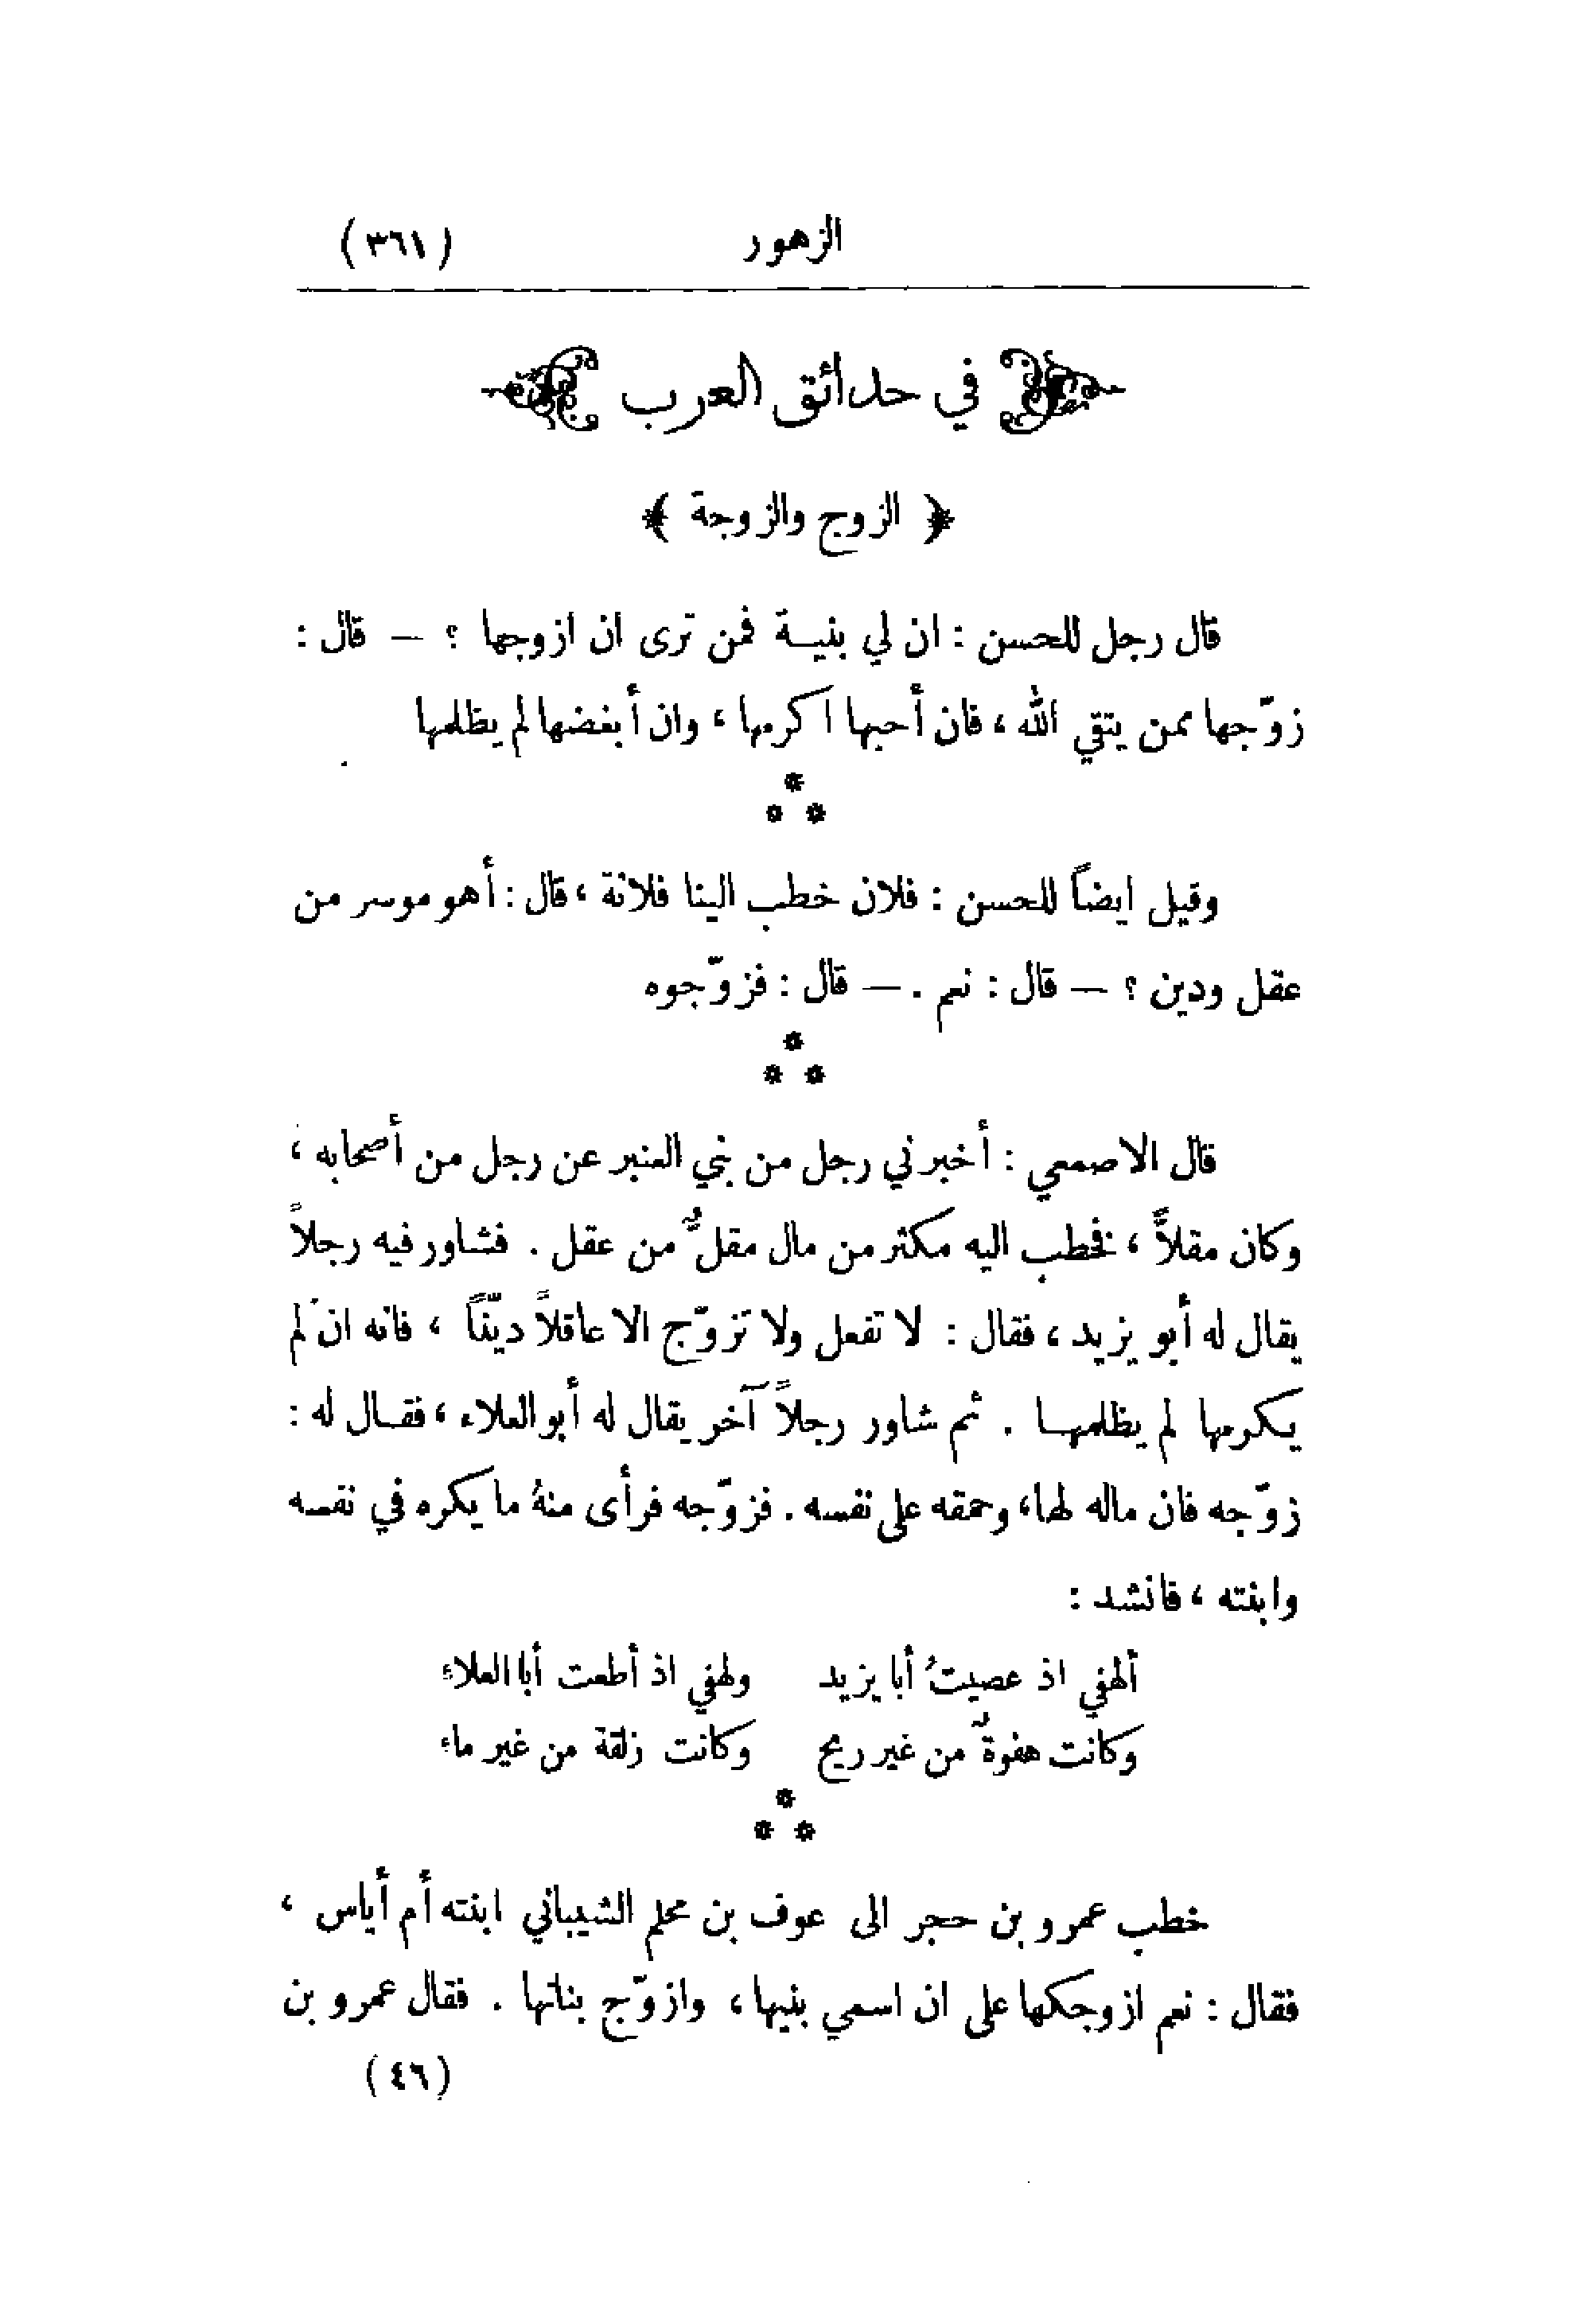 الزهور (٣٦١)
في حدائق العرب
﴿ الزوج والزوجة ﴾
قال رجل للحسن : ان لي بنيــة فمن ترى ان ازوجها ؟ — قال :
زوّجها ممن يتقي الله ، فان أحبها اكرمها ، وان أبغضها لم يظلمها
***
وقيل ايضاً للحسن : فلان خطب الينا فلانة ، قال : أهو موسر من
عقل ودين ؟ — قال : نعم . — قال : فزوّجوه
***
قال الاصمعي : أخبرني رجل من بني العنبر عن رجل من أصحابه ،
وكان مقلاًّ ، فخطب اليه مكثر من مال مقلٌّ من عقل . فشاور فيه رجلاً
يقال له أبو يزيد ، فقال : لا تفعل ولا تزوّج الا عاقلاً ديّناً ، فانه ان لم
يكرمها لم يظلمهــا . ثم شاور رجلاً آخر يقال له أبو العلاء ، فقــال له :
زوّجه فان ماله لها ، وحمقه على نفسه . فزوّجه فرأى منهُ ما يكره في نفسه
وابنته ، فانشد :
ألهفي اذ عصيتُ أبا يزيد ولهفي اذ أطعت أبا العلاء
وكانت هفوةٌ من غير ريح وكانت زلقة من غير ماء
***
خطب عمرو بن حجر الى عوف بن محلم الشيباني ابنته أم أياس ،
فقال : نعم ازوجكها على ان اسمي بنيها ، وازوّج بناتها . فقال عمرو بن
(٤٦)